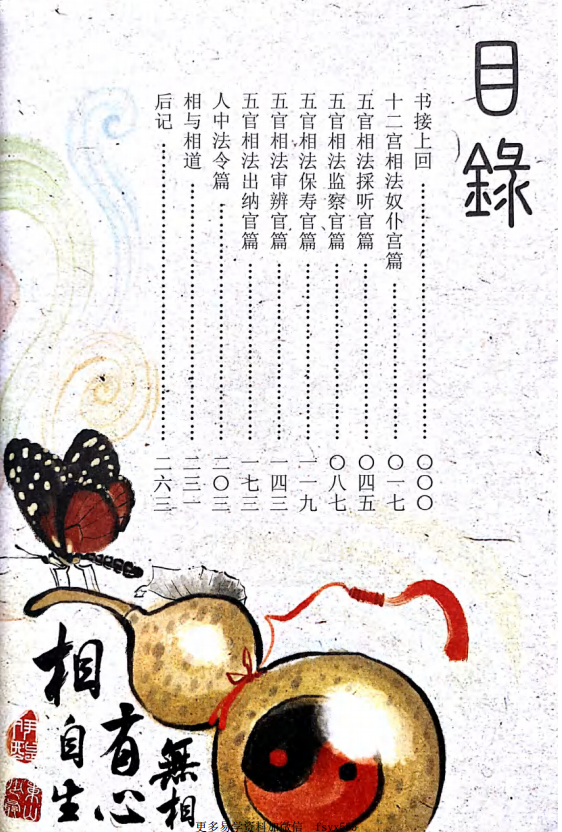 目錄
书接上回……〇〇〇
十二宫相法奴仆宫篇……〇一七
五官相法採听官篇……〇四五
五官相法监察官篇……〇八七
五官相法保寿官篇……一一九
五官相法审辨官篇……一四三
五官相法出纳官篇……一七三
人中法令篇……二〇三
相与相道……二三一
后记……二六三
無相
有心
相自生
更多易学资料加微信